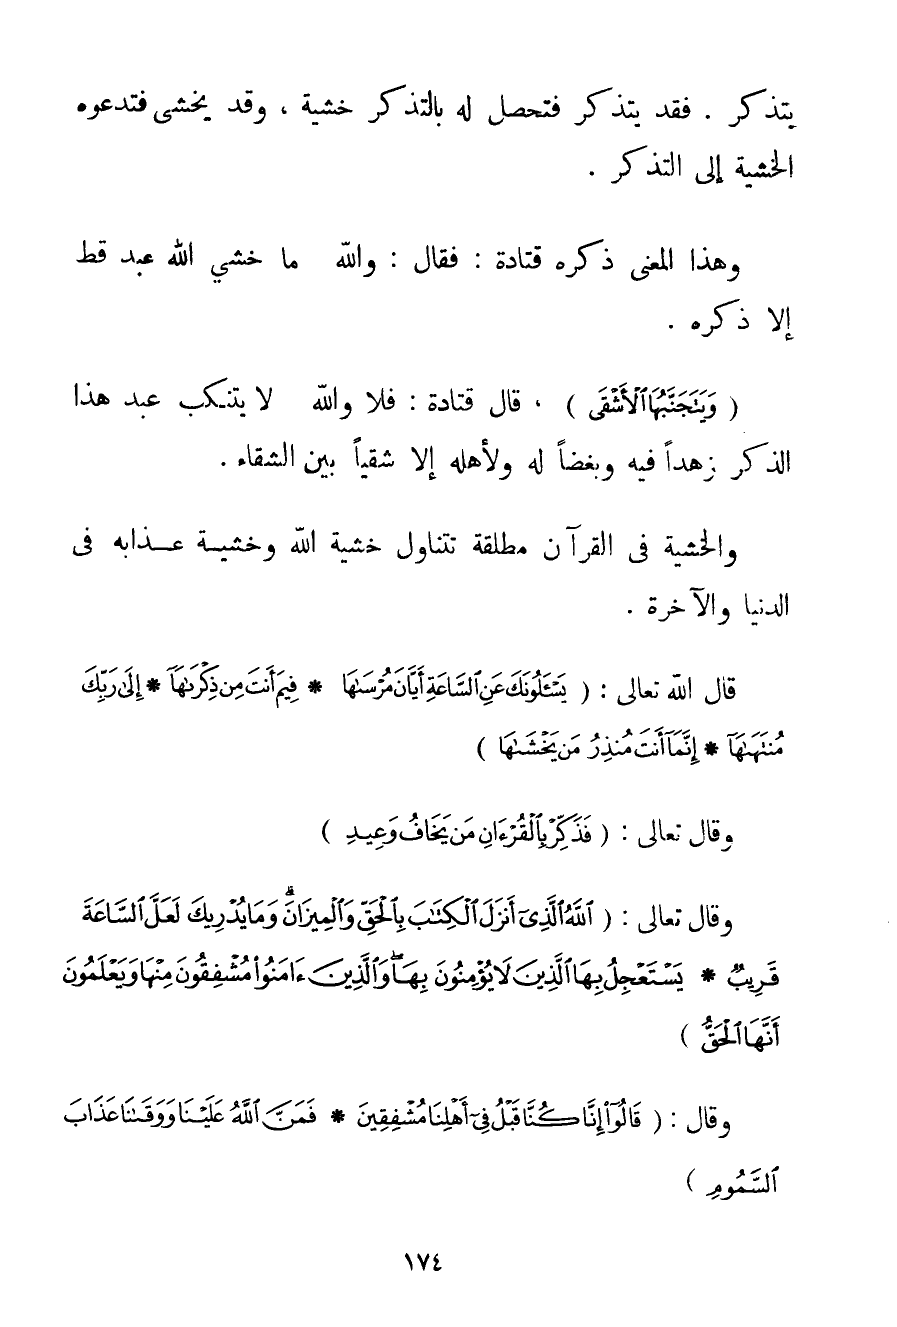 يتذكر . فقد يتذكر فتحصل له بالتذكر خشية ، وقد يخشى فتدعوه
الخشية إلى التذكر .
وهذا المعنى ذكره قتادة : فقال : والله ما خشي الله عبد قط
إلا ذكره .
( وَيَتَجَنَّبُهَا ٱلْأَشْقَى ) ، قال قتادة : فلا والله لا يتنكب عبد هذا
الذكر زهداً فيه وبغضاً له ولأهله إلا شقياً بين الشقاء .
والخشية فى القرآن مطلقة تتناول خشية الله وخشيــة عــذابه فى
الدنيا والآخرة .
قال الله تعالى : ( يَسْـَٔلُونَكَ عَنِ ٱلسَّاعَةِ أَيَّانَ مُرْسَىٰهَا * فِيمَ أَنتَ مِن ذِكْرَىٰهَآ * إِلَىٰ رَبِّكَ
مُنتَهَىٰهَآ * إِنَّمَآ أَنتَ مُنذِرُ مَن يَخْشَىٰهَا )
وقال تعالى : ( فَذَكِّرْ بِٱلْقُرْءَانِ مَن يَخَافُ وَعِيدِ )
وقال تعالى : ( ٱللَّهُ ٱلَّذِىٓ أَنزَلَ ٱلْكِتَٰبَ بِٱلْحَقِّ وَٱلْمِيزَانَ ۗ وَمَا يُدْرِيكَ لَعَلَّ ٱلسَّاعَةَ
قَرِيبٌ * يَسْتَعْجِلُ بِهَا ٱلَّذِينَ لَا يُؤْمِنُونَ بِهَا ۖ وَٱلَّذِينَ ءَامَنُوا۟ مُشْفِقُونَ مِنْهَا وَيَعْلَمُونَ
أَنَّهَا ٱلْحَقُّ )
وقال : ( قَالُوٓا۟ إِنَّا كُنَّا قَبْلُ فِىٓ أَهْلِنَا مُشْفِقِينَ * فَمَنَّ ٱللَّهُ عَلَيْنَا وَوَقَىٰنَا عَذَابَ
ٱلسَّمُومِ )
١٧٤